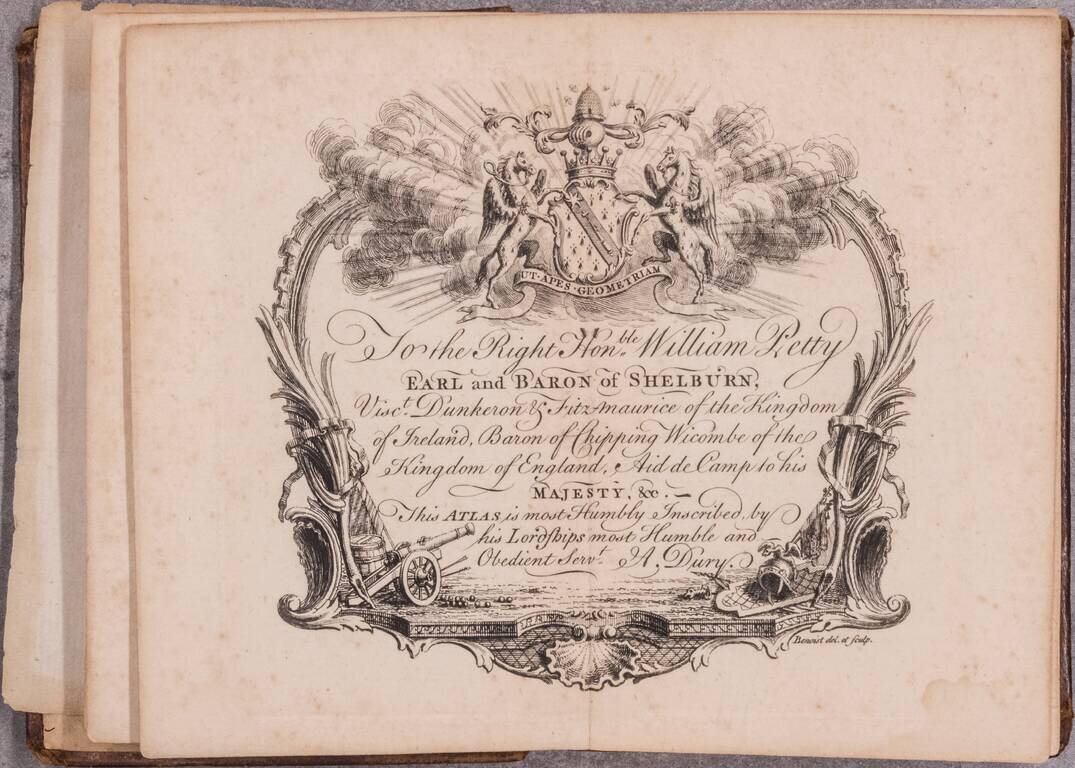 UT·APES·GEOMETRIAM
To the Right Hon.ble William Petty
EARL and BARON of SHELBURN,
Visc.t Dunkeron & Fitzmaurice of the Kingdom
of Ireland, Baron of Chipping Wicombe of the
Kingdom of England, Aid de Camp to his
MAJESTY, &c. —
This ATLAS, is most Humbly Inscribed, by
his Lordships most Humble and
Obedient Serv.t A, Dury.
Benoist del. et sculp.